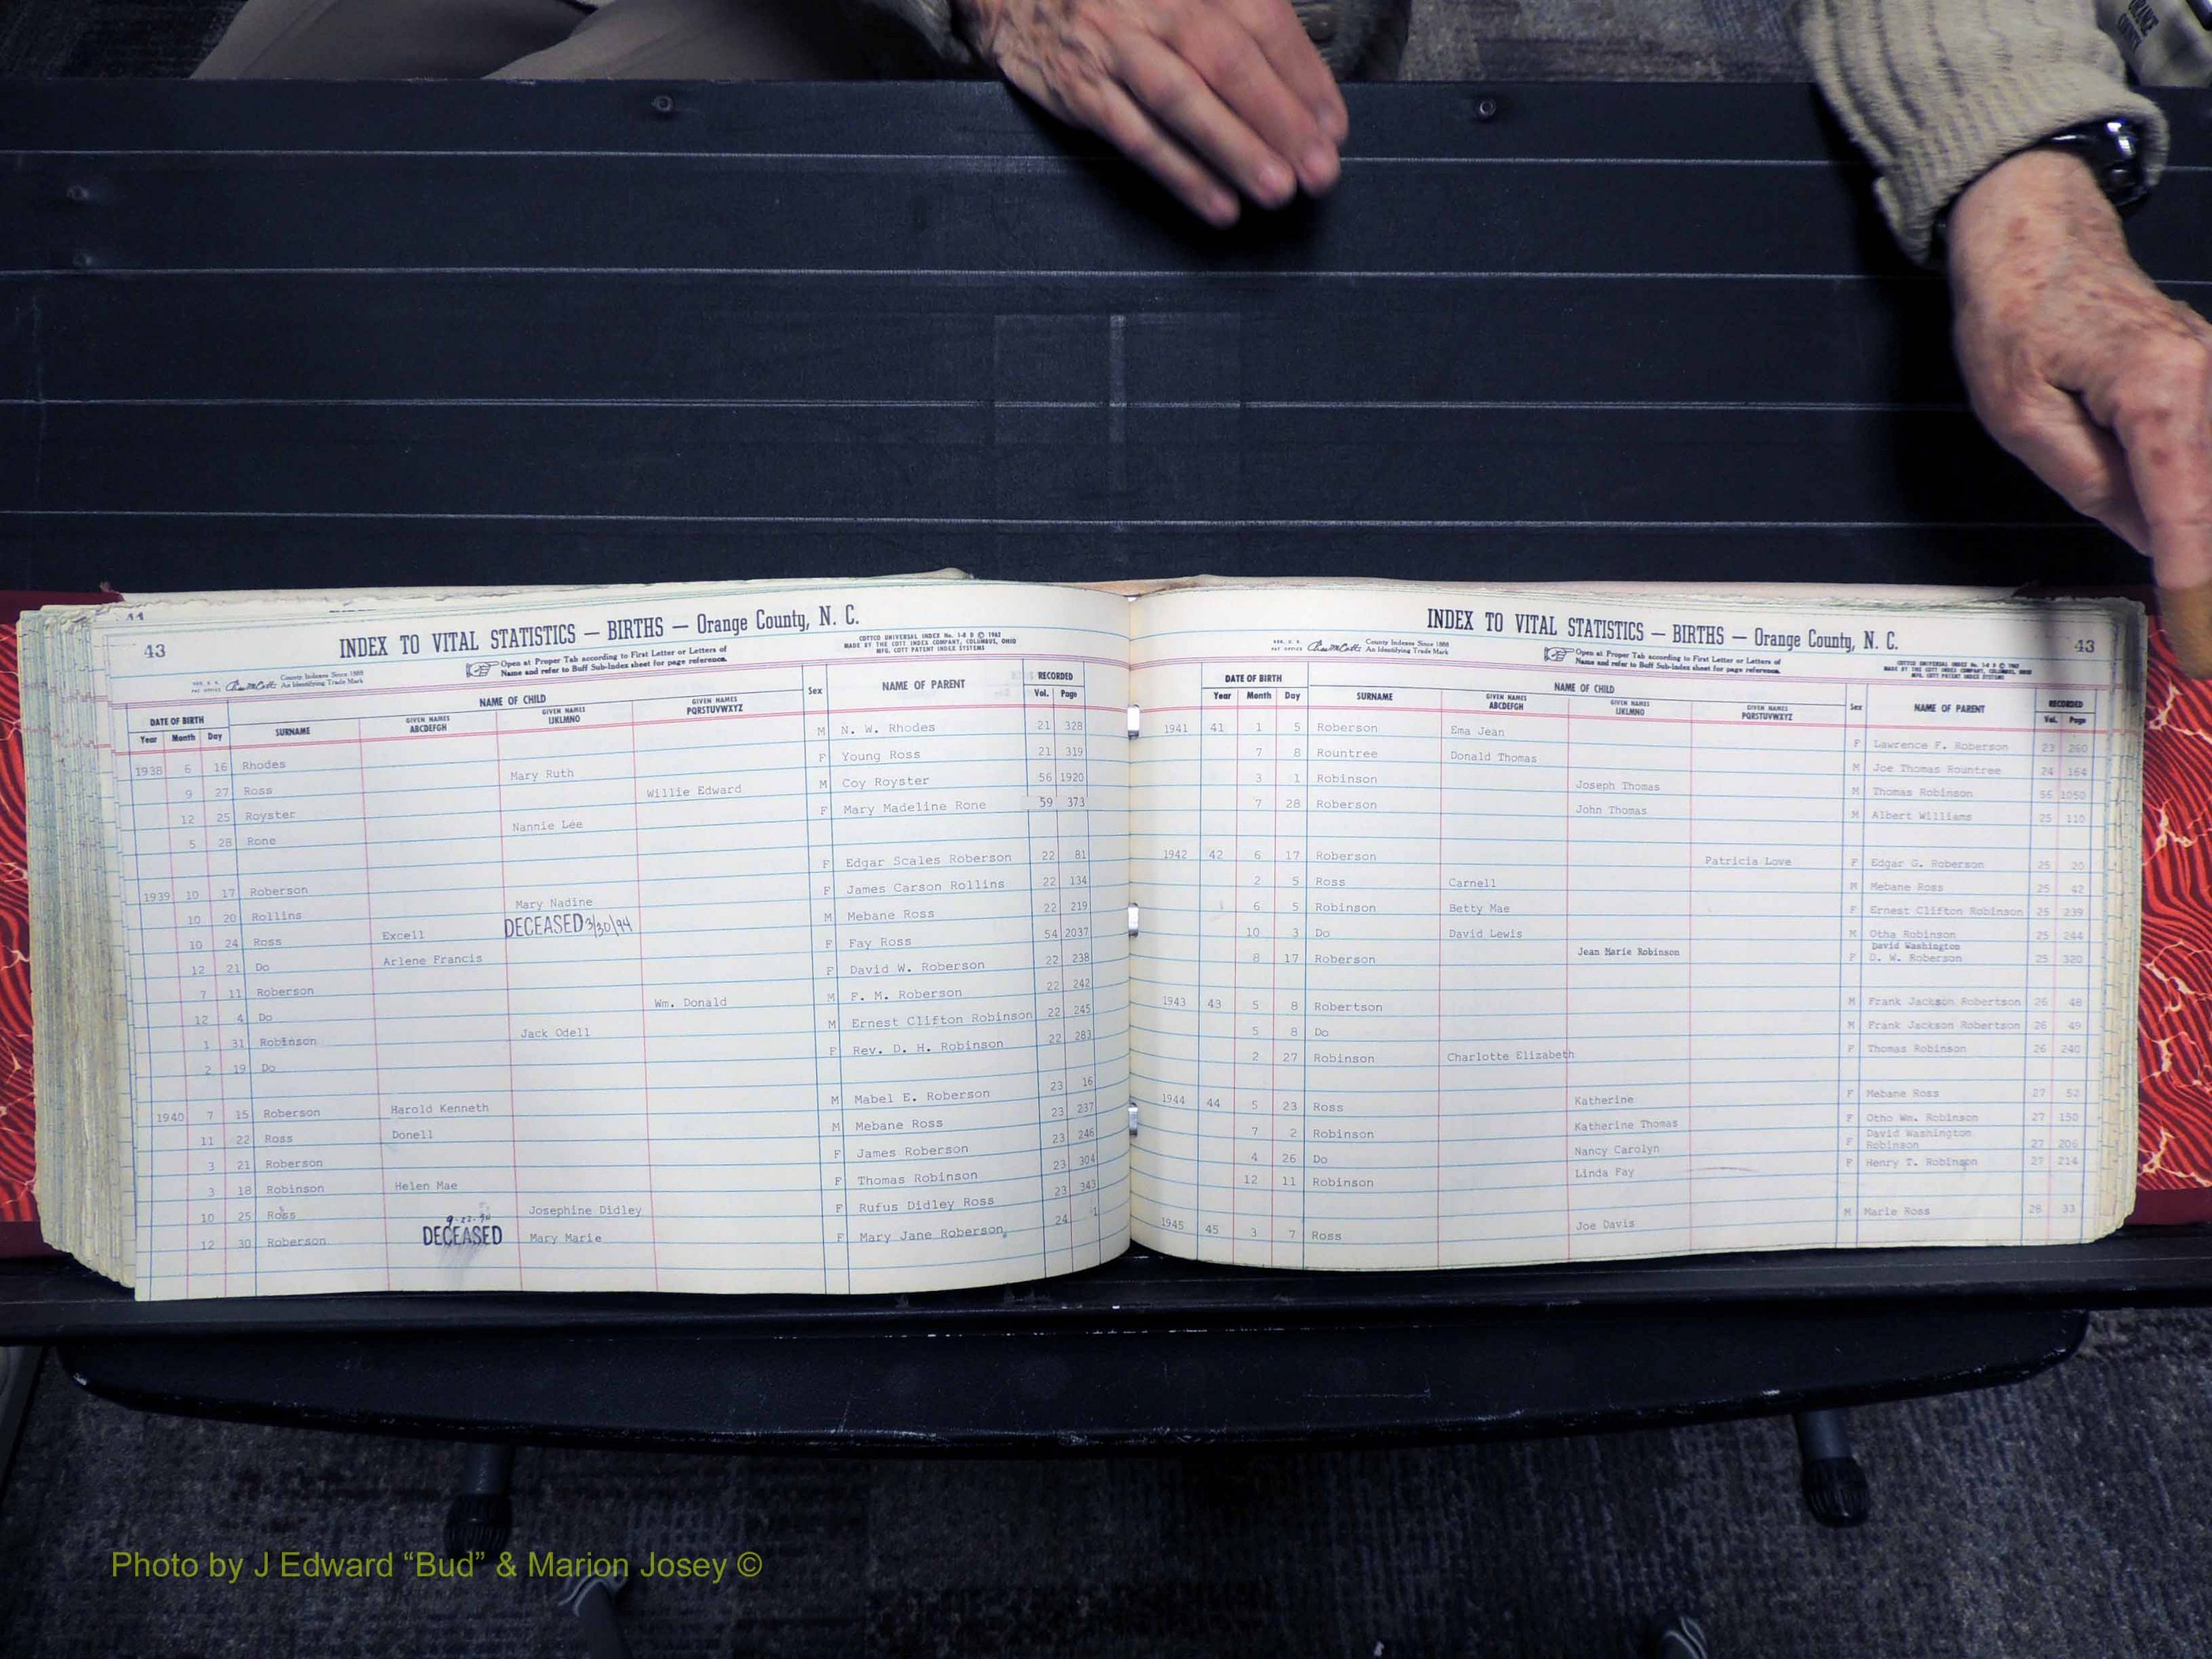 ORANGE
COUNTY
44
43
INDEX TO VITAL STATISTICS — BIRTHS — Orange County, N. C.
COTTCO UNIVERSAL INDEX No. 1-8 D © 1962
MADE BY THE COTT INDEX COMPANY, COLUMBUS, OHIO
MFG. COTT PATENT INDEX SYSTEMS
County Indexes Since 1888
An Identifying Trade Mark
Open at Proper Tab according to First Letter or Letters of
Name and refer to Buff Sub-Index sheet for page reference.
DATE OF BIRTH NAME OF CHILD Sex NAME OF PARENT RECORDED
Year Month Day SURNAME GIVEN NAMES ABCDEFGH GIVEN NAMES IJKLMNO GIVEN NAMES PQRSTUVWXYZ Vol. Page
1938 6 16 Rhodes M N. W. Rhodes 21 328
9 27 Ross Mary Ruth F Young Ross 21 319
12 25 Royster Willie Edward M Coy Royster 56 1920
5 28 Rone Nannie Lee F Mary Madeline Rone 59 373
1939 10 17 Roberson F Edgar Scales Roberson 22 81
10 20 Rollins Mary Nadine F James Carson Rollins 22 134
10 24 Ross Excell DECEASED 3/30/94 M Mebane Ross 22 219
12 21 Do Arlene Francis F Fay Ross 54 2037
7 11 Roberson F David W. Roberson 22 238
12 4 Do Wm. Donald M F. M. Roberson 22 242
1 31 Robinson Jack Odell M Ernest Clifton Robinson 22 245
2 19 Do F Rev. D. H. Robinson 22 283
1940 7 15 Roberson Harold Kenneth M Mabel E. Roberson 23 16
11 22 Ross Donell M Mebane Ross 23 237
3 21 Roberson F James Roberson 23 246
3 18 Robinson Helen Mae F Thomas Robinson 23 304
10 25 Ross Josephine Didley F Rufus Didley Ross 23 343
12 30 Roberson DECEASED Mary Marie F Mary Jane Roberson 24 1
INDEX TO VITAL STATISTICS — BIRTHS — Orange County, N. C.
43
County Indexes Since 1888
An Identifying Trade Mark
Open at Proper Tab according to First Letter or Letters of
Name and refer to Buff Sub-Index sheet for page reference.
DATE OF BIRTH NAME OF CHILD Sex NAME OF PARENT RECORDED
Year Month Day SURNAME GIVEN NAMES ABCDEFGH GIVEN NAMES IJKLMNO GIVEN NAMES PQRSTUVWXYZ Vol. Page
1941 41 1 5 Roberson Ema Jean F Lawrence F. Roberson 23 260
7 8 Rountree Donald Thomas M Joe Thomas Rountree 24 164
3 1 Robinson Joseph Thomas M Thomas Robinson 56 1050
7 28 Roberson John Thomas M Albert Williams 25 110
1942 42 6 17 Roberson Patricia Love F Edgar G. Roberson 25 20
2 5 Ross Carnell M Mebane Ross 25 42
6 5 Robinson Betty Mae F Ernest Clifton Robinson 25 239
10 3 Do David Lewis M Otha Robinson 25 244
David Washington
8 17 Roberson Jean Marie Robinson F D. W. Roberson 25 320
1943 43 5 8 Robertson M Frank Jackson Robertson 26 48
5 8 Do M Frank Jackson Robertson 26 49
2 27 Robinson Charlotte Elizabeth F Thomas Robinson 26 240
1944 44 5 23 Ross Katherine F Mebane Ross 27 52
7 2 Robinson Katherine Thomas F Otho Wm. Robinson 27 150
David Washington
4 26 Do Nancy Carolyn F Robinson 27 206
12 11 Robinson Linda Fay F Henry T. Robinson 27 214
1945 45 3 7 Ross Joe Davis M Marie Ross 28 33
Photo by J Edward “Bud” & Marion Josey ©